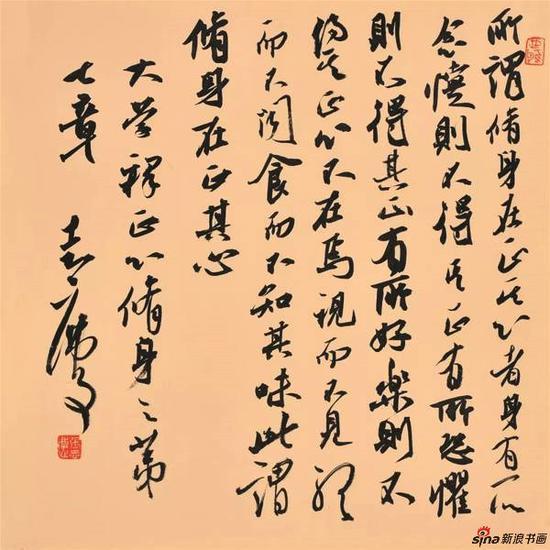 所謂脩身在正其心者身有所
忿懥則不得其正有所恐懼
則不得其正有所好樂則不
得其正心不在焉視而不見聽
而不聞食而不知其味此謂
脩身在正其心
大学釋正心脩身之第
七章
sina新浪书画